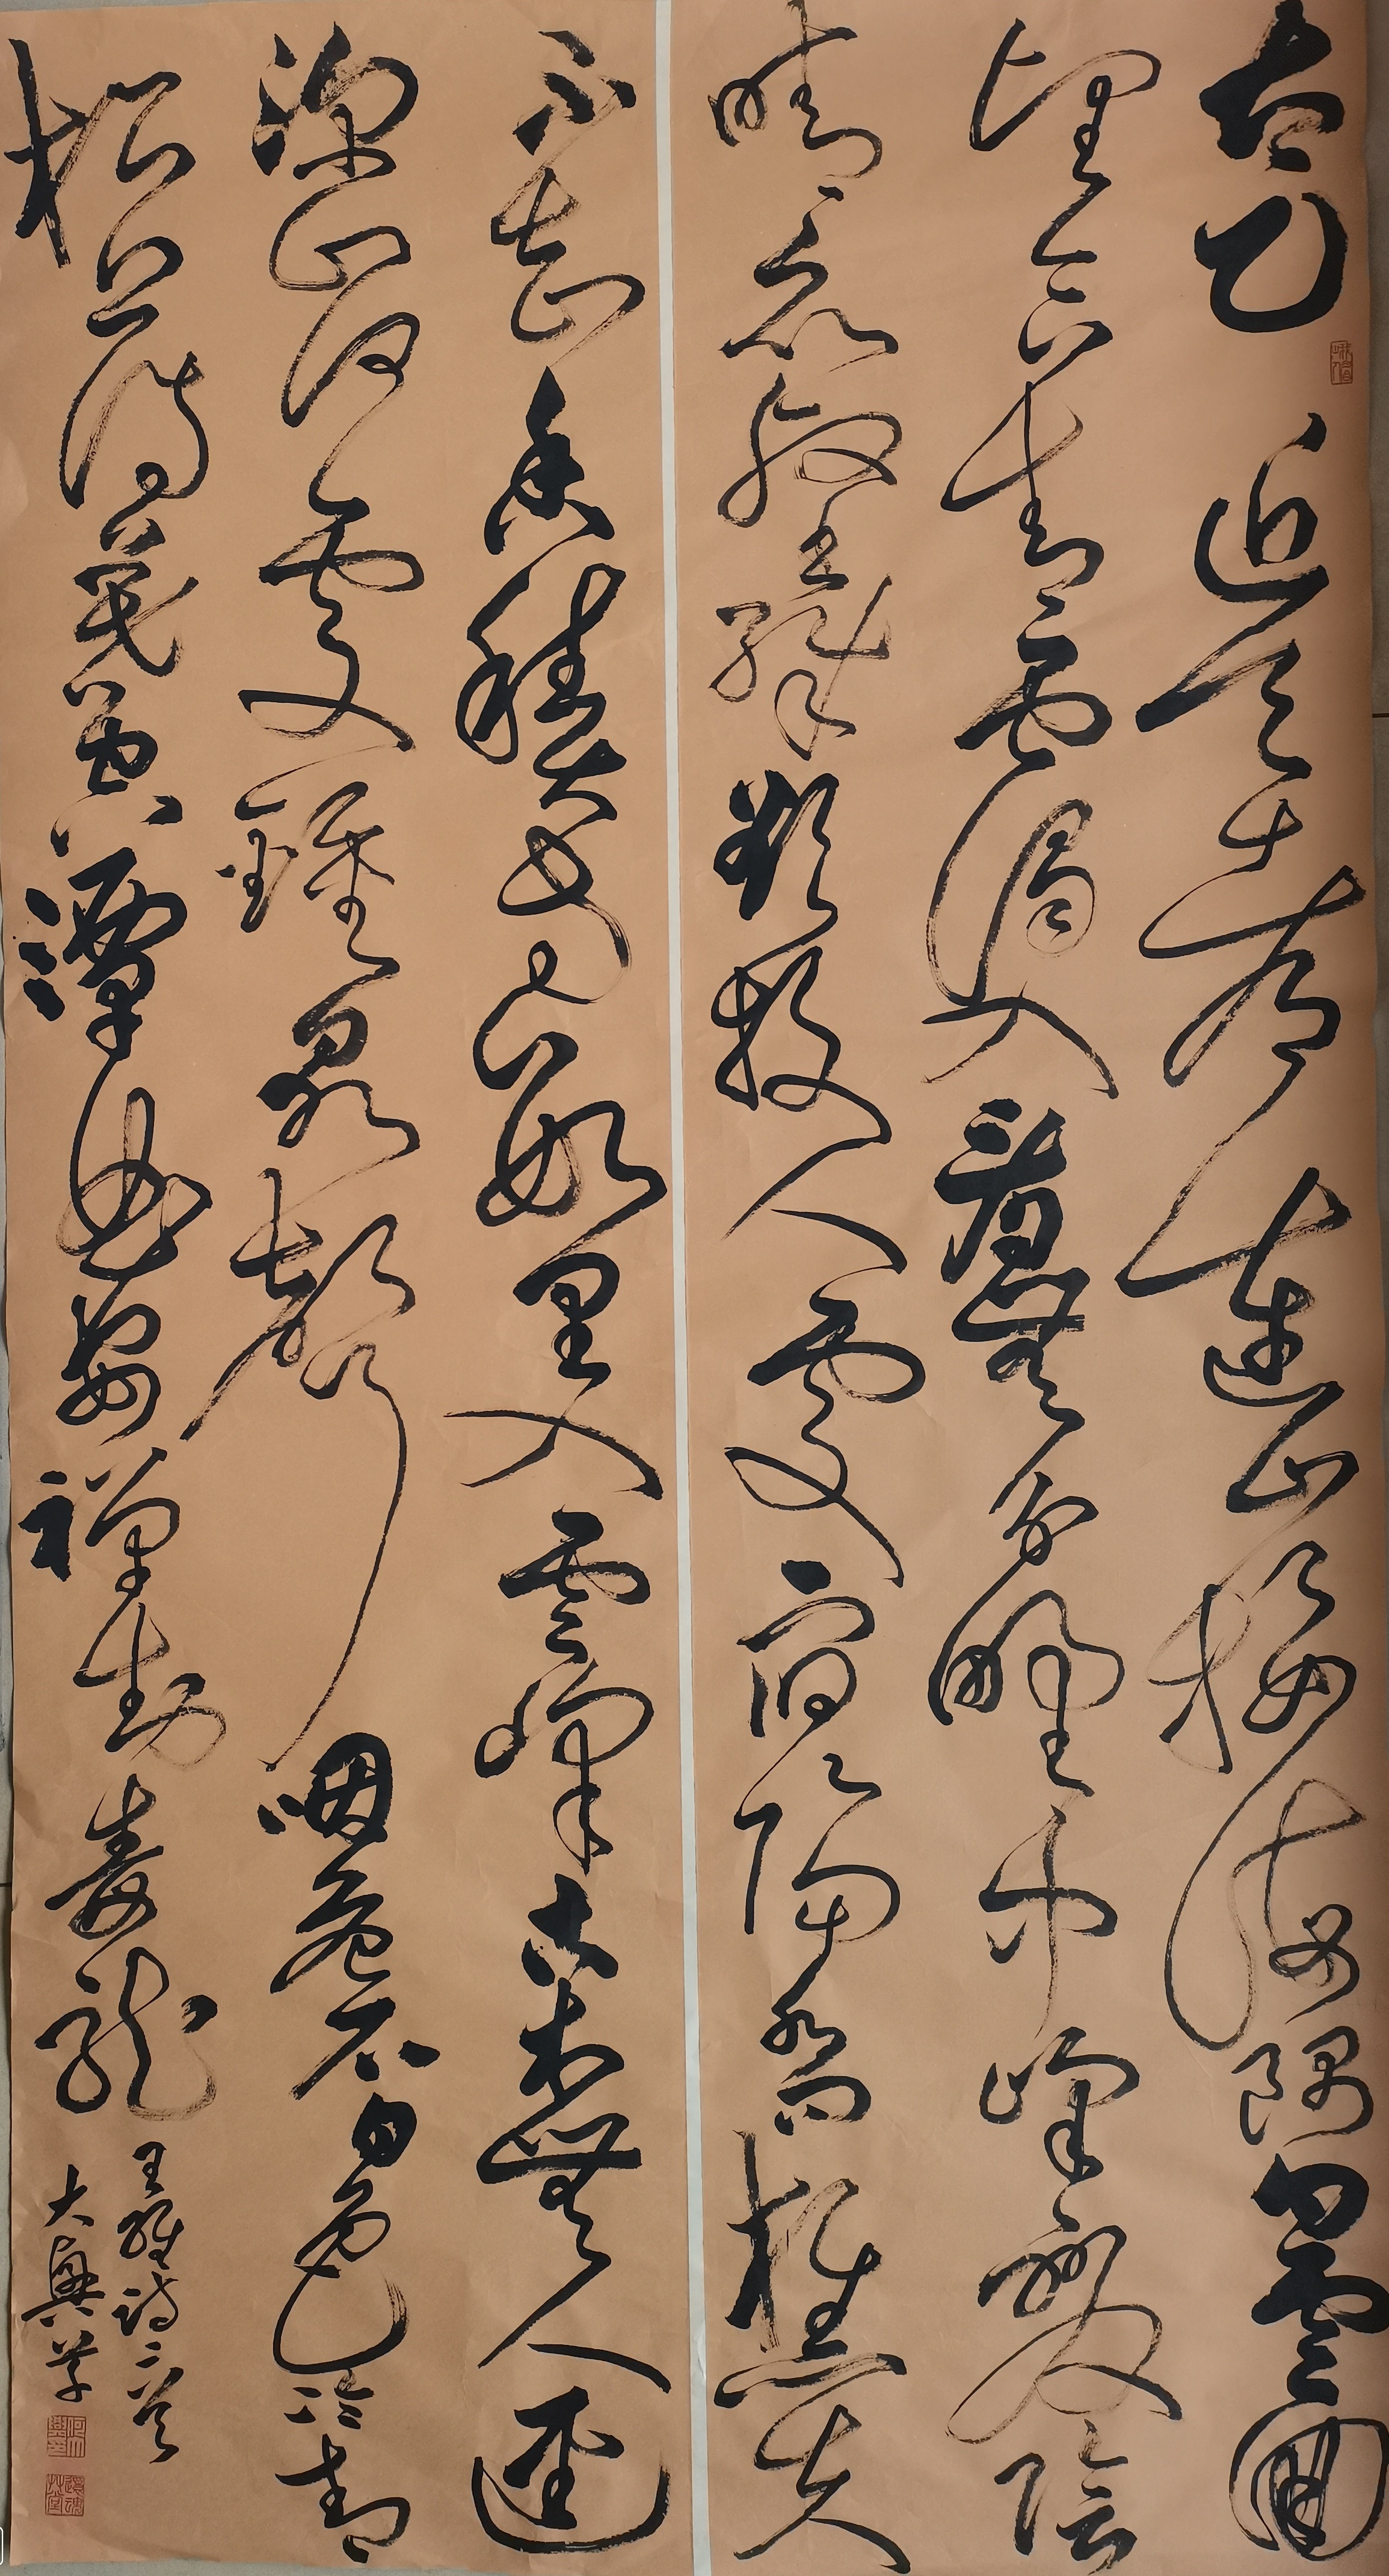 太乙近天都連山接海隅白雲回
望合青靄入看無分野中峰變陰
晴衆壑殊欲投人處宿隔水問樵夫
不知香積寺數里入雲峰古木無人逕
深山何處鐘泉聲咽危石日色冷青
松薄暮空潭曲安禪制毒龍
王維詩二首
大興草